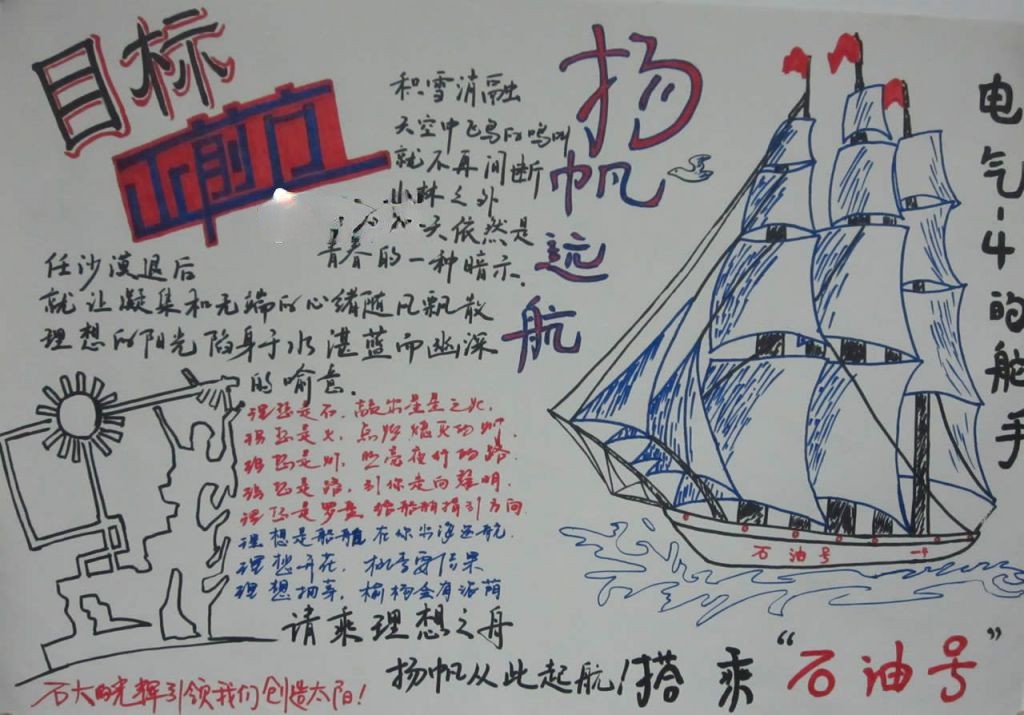 目标
正前方
积雪消融
天空中飞鸟的鸣叫
就不再间断
小林之外
天依然是
青春的一种暗示.
任沙漠退后
就让凝集和无端的心绪随风飘散
理想的阳光陷身于水湛蓝而幽深
的喻意.
理想是石,敲出星星之火,
理想是火,点燃熄灭的灯,
理想是灯,照亮夜行的路.
理想是路,引你走向黎明.
理想是罗盘,给船舶指引方向
理想是船舶,在你出海远航.
理想开花,桃李要结果
理想抽芽,榆杨会有浓荫
请乘理想之舟
扬帆从此起航!搭乘“石油号”
石大的光辉引领我们创造太阳!
扬帆远航
电气-4的舵手
石油号